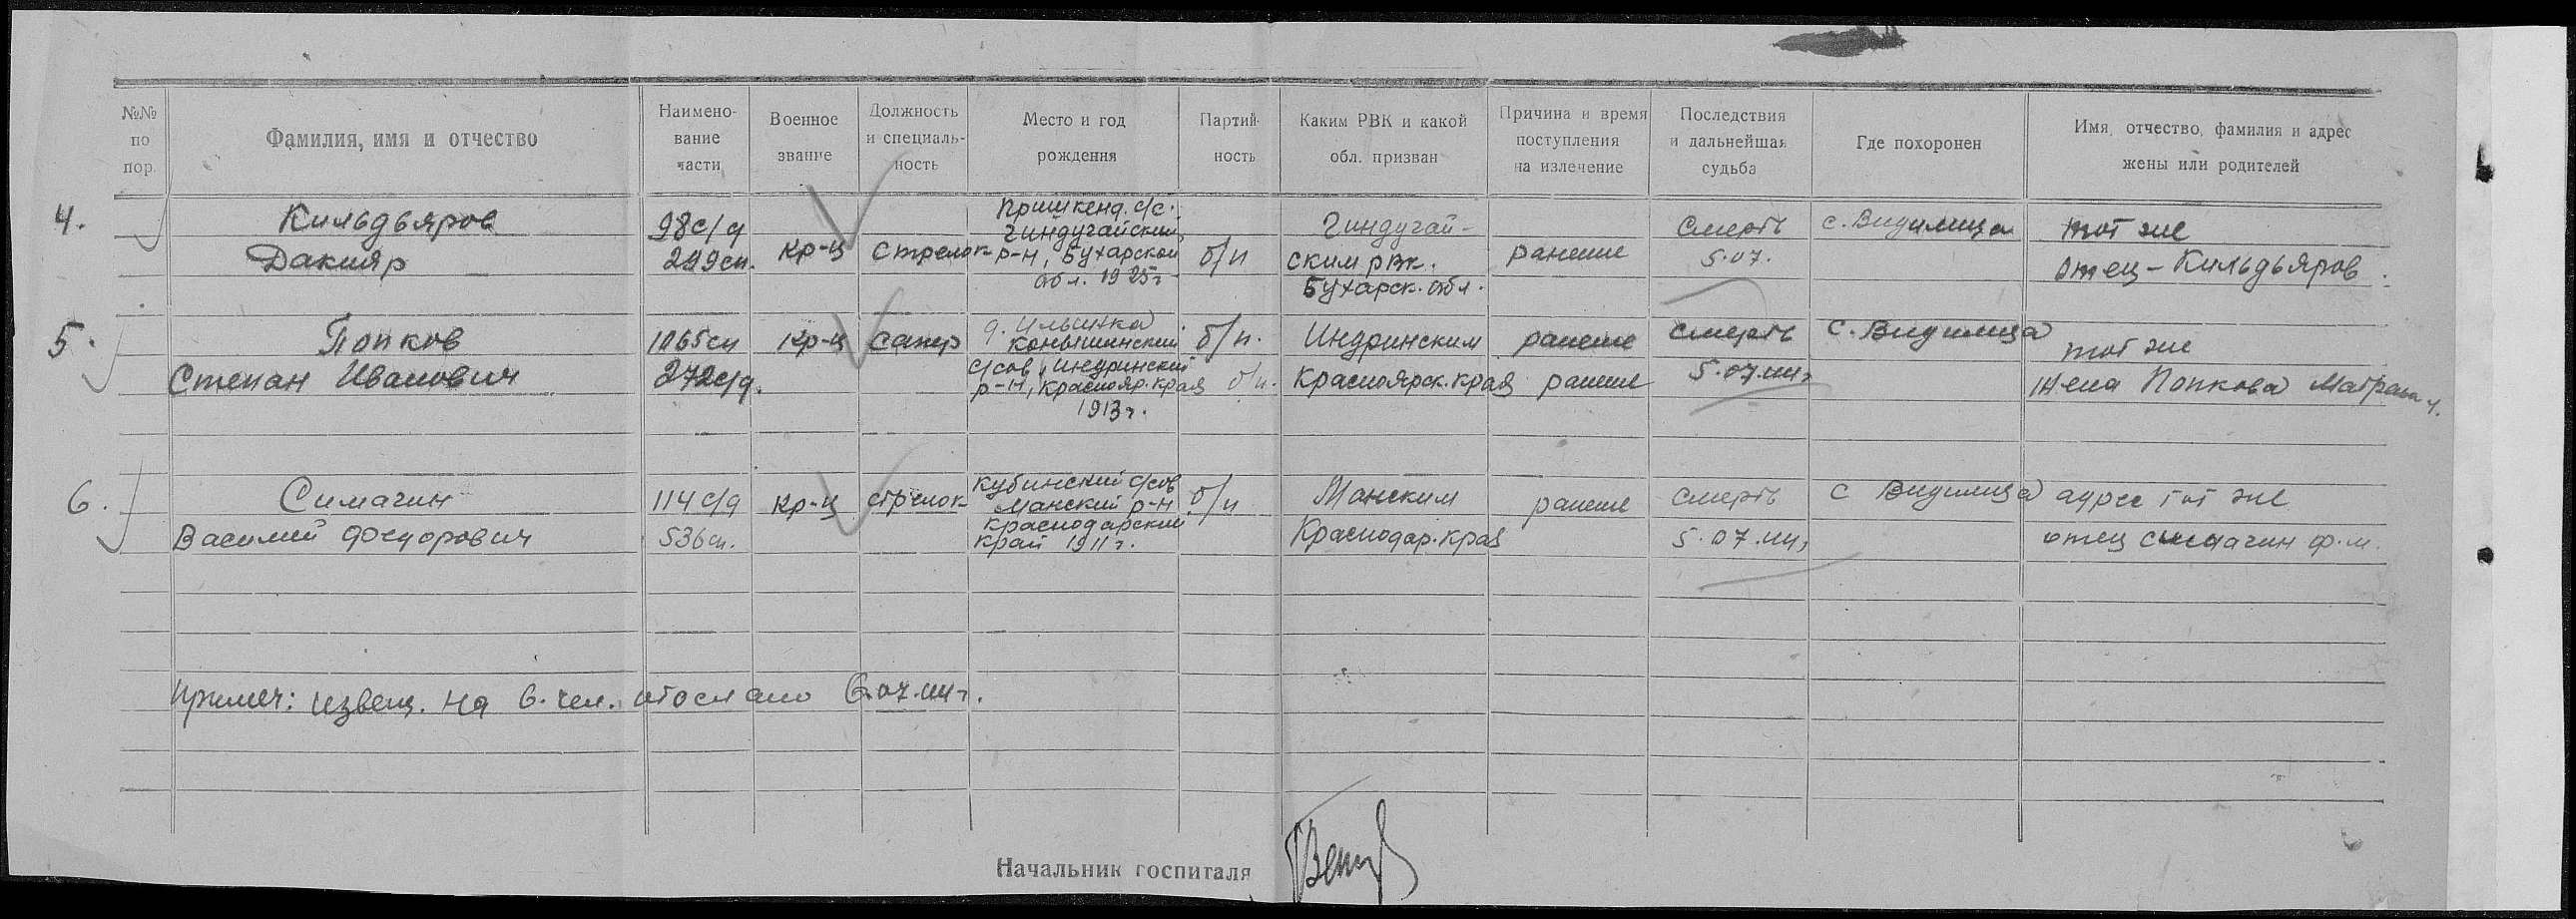 №№ по пор.
Фамилия, имя и отчество
Наимено-
вание
части
Военное
звание
Должность
и специаль-
ность
Место и год
рождения
Партий-
ность
Каким РВК и какой
обл. призван
Причина и время
поступления
на излечение
Последствия
и дальнейшая
судьба
Где похоронен
Имя, отчество, фамилия и адрес
жены или родителей
4.
Кильдьяров
Дакияр
98 с/д
299 сп.
кр-ц
стрелок
Пришкенд. с/с.
Гиндугайский
р-н, Бухарской
обл. 1925 г
б/п
Гиндугай-
ским рвк.
Бухарск. обл.
ранение
Смерть
5.07.
с. Видимица
тот же
отец - Кильдьяров
5.
Попков
Степан Иванович
1065 сп
272 с/д.
кр-ц
сапер
д. Ильинка
Коньшинский
с/сов, Индринский
р-н, Красноярск. края
1913 г.
б/п.
б/п.
Индринским
Красноярск. края
ранение
ранение
смерть
5.07.44 г
с. Видимица
тот же
жена Попкова
6.
Симагин
Василий Федорович
114 с/д
536 сп.
кр-ц
стрелок
Кубинский с/сов
Манский р-н
Краснодарский
край 1911 г.
б/п
Манским
Краснодар. края
ранение
смерть
5.07.44 г
с Видимица
адрес тот же
отец Симагин Ф.М.
Примеч: извещ. на 6. чел. отослано 6.07.44 г.
Начальник госпиталя